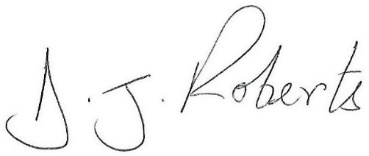 D. J. Roberts